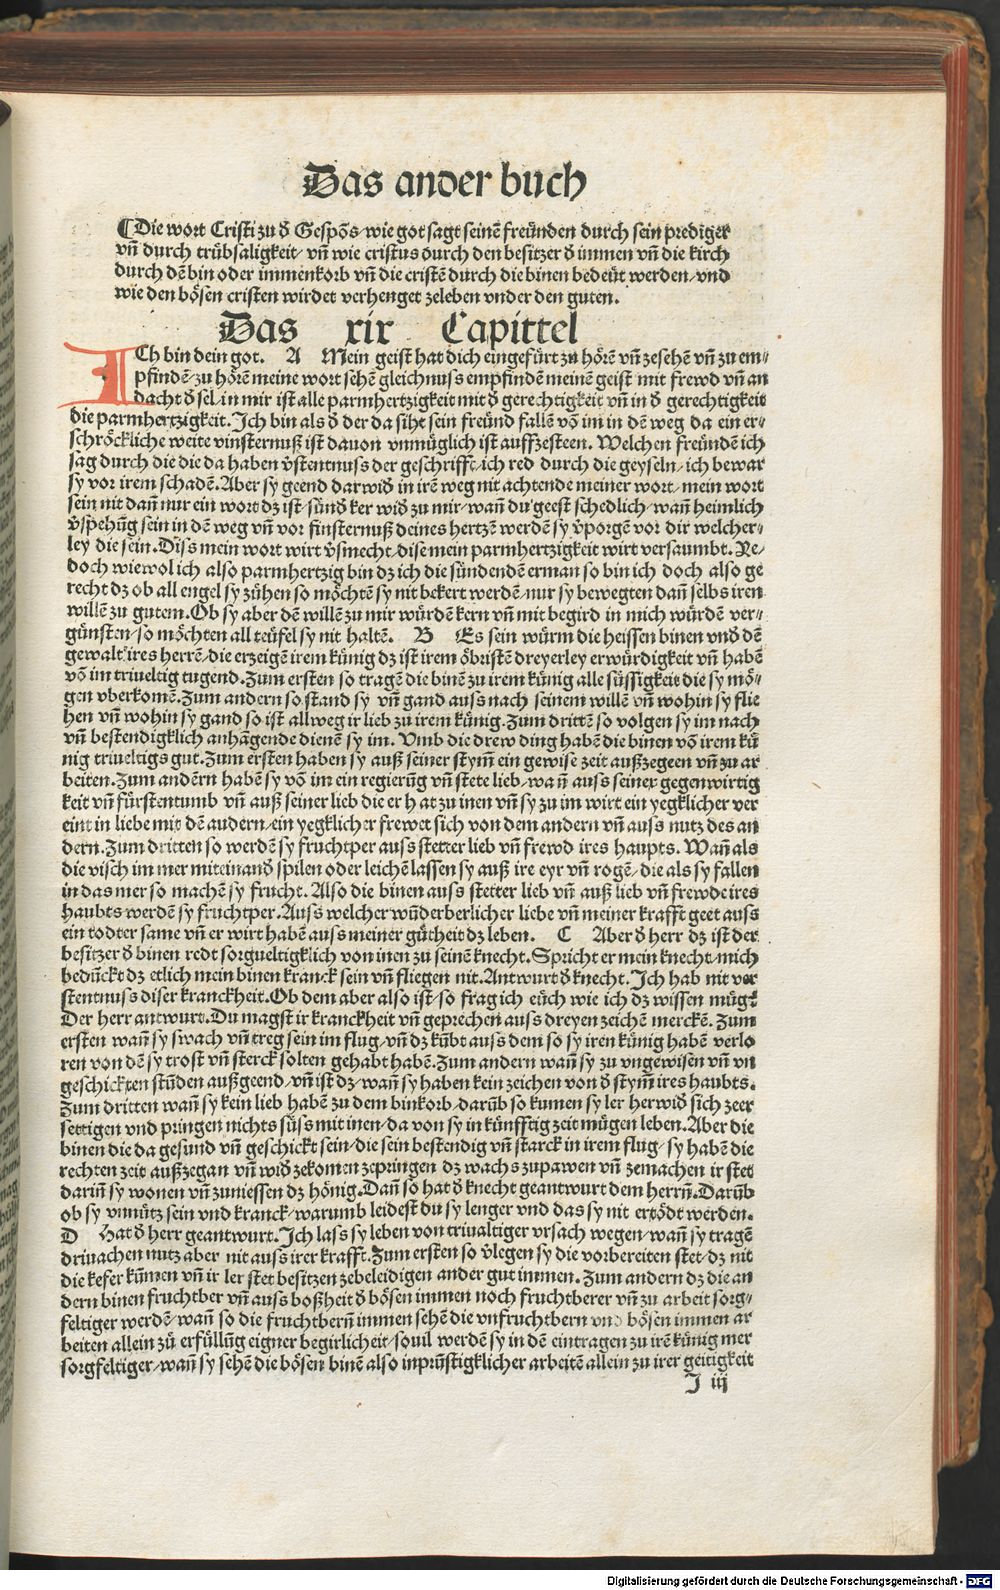 Das ander buch
¶Die wort Cristi zu d̕ Gespōs/wie got sagt seinē freünden durch sein prediger
vn̄ durch trübsaligkeit/ vn̄ wie cristus durch den besitzer d̕ immen vn̄ die kirch
durch dē bin oder immenkorb vn̄ die cristē durch die binen bedeüt werden/vnd
wie den bösen cristen wirdet verhenget zeleben vnder den guten.
Das xix Capittel
ICh bin dein got. A Mein geist hat dich eingefürt zu hörē vn̄ zesehē vn̄ zu em⸗
pfindē/zu hörē meine wort sehē gleichnuss empfindē meinē geist mit frewd vn̄ an
dacht d̕ sel/in mir ist alle parmhertzigkeit mit d̕ gerechtigkeit vn̄ in d̕ gerechtigkeit
die parmhertzigkeit. Ich bin als d̕ der da siht sein freünd fallē vō im in dē weg da ein er⸗
schröckliche weite vinsternuß ist dauon vnmüglich ist auffzesteen. Welchen freündē ich
sag durch die die da haben v̕stentnuss der geschrifft/ich red durch die geyseln/ich bewar
sy vor irem schadē. Aber sy geend darwid̕ in irē weg nit achtende meiner wort/mein wort
sein nit dan̄ nur ein wort dz ist/sünd̕ ker wid̕ zu mir/wan̄ du geest schedlich/wan̄ heimlich
v̕spehūg sein in dē weg vn̄ vor finsternuß deines hertzē werdē sy v̕porgē vor dir welcher⸗
ley die sein. Diss mein wort wirt v̕smecht/dise mein parmhertzigkeit wirt versaumbt. Je⸗
doch wiewol ich also parmhertzig bin dz ich die sündendē erman so bin ich doch also ge
recht dz ob all engel sy zühen so möchtē sy nit bekert werdē/nur sy bewegten dan̄ selbs iren
willē zu gutem. Ob sy aber dē willē zu mir würdē kern vn̄ mit begird in mich würdē ver⸗
günsten/so möchten all teüfel sy nit haltē. B Es sein würm die heissen binen vnd̕ dē
gewalt ires herrē/die erzeigē irem künig dz ist irem öbristē dreyerley erwürdigkeit vn̄ habē
vō im triueltig tugend. Zum ersten so tragē die binē zu irem künig alle süssigkeit die sy mö⸗
gen vberkomē. Zum andern so stand sy vn̄ gand auss nach seinem willē vn̄ wohin sy flie
hen vn̄ wohin sy gand so ist allweg ir lieb zu irem künig. Zum drittē so volgen sy im nach
vn̄ bestendigklich anhāgende dienē sy im. Vmb die drew ding habē die binen vō irem kü
nig triueltigs gut. Zum ersten haben sy auß seiner stym̄ ein gewise zeit außzegeen vn̄ zu ar
beiten. Zum andern habē sy vō im ein regierūg vn̄ stete lieb/wan̄ auss seiner gegenwirtig
keit vn̄ fürstentumb vn̄ auß seiner lieb die er hat zu inen vn̄ sy zu im wirt ein yegklicher ver
eint in liebe mit dē andern/ein yegklicher frewet sich von dem andern vn̄ auss nutz des an
dern. Zum dritten so werdē sy fruchtper auss stetter lieb vn̄ frewd ires haupts. Wan̄ als
die visch im mer miteinand̕ spilen oder leichē lassen sy auß ire eyr vn̄ rogē/die als sy fallen
in das mer so machē sy frucht. Also die binen auss stetter lieb vn̄ auß lieb vn̄ frewde ires
haubts werdē sy fruchtper. Auss welcher wūderberlicher liebe vn̄ meiner krafft geet auss
ein todter same vn̄ er wirt habē auss meiner gütheit dz leben. C Aber d̕ herr dz ist der
besitzer d̕ binen redt sorgueltigklich von inen zu seinē knecht. Spricht er mein knecht/mich
bedūckt dz etlich mein binen kranck sein vn̄ fliegen nit. Antwurt d̕ knecht. Ich hab nit ver
stentnuss diser kranckheit. Ob dem aber also ist/so frag ich eüch wie ich dz wissen müg?
Der herr antwurt. Du magst ir kranckheit vn̄ geprechen auss dreyen zeichē merckē. Zum
ersten wan̄ sy swach vn̄ treg sein im flug/vn̄ dz kūbt auss dem so sy iren künig habē verlo
ren von dē sy trost vn̄ sterck solten gehabt habē. Zum andern wan̄ sy zu vngewisen vn̄ vn
geschickten stūden außgeend/vn̄ ist dz/wan̄ sy haben kein zeichen von d̕ stym̄ ires haubts.
Zum dritten wan̄ sy kein lieb habē zu dem binkorb/darūb so kumen sy ler herwid̕ sich zeer
settigen vnd pringen nichts süss mit inen/da von sy in künfftig zeit mügen leben. Aber die
binen die da gesund vn̄ geschickt sein/die sein bestendig vn̄ starck in irem flug/sy habē die
rechten zeit außzegan vn̄ wid̕ zekomen zepringen dz wachs zupawen vn̄ zemachen ir stet
darin̄ sy wonen vn̄ zuniessen dz hönig. Dan̄ so hat d̕ knecht geantwurt dem herrn̄. Darūb
ob sy vnnütz sein vnd kranck/warumb leidest du sy lenger vnd das sy nit ertödt werden.
D Hat d̕ herr geantwurt. Ich lass sy leben von triualtiger vrsach wegen/wan̄ sy tragē
driuachen nutz aber nit auss irer krafft. Zum ersten so v̕legen sy die vorbereiten stet/dz nit
die kefer kūmen vn̄ ir ler stet besitzen zebeleidigen ander gut immen. Zum andern dz die an
dern binen fruchtber vn̄ auss boßheit d̕ bösen immen noch fruchtberer vn̄ zu arbeit sorg⸗
feltiger werdē/wan̄ so die fruchtbern̄ immen sehē die vnfruchtbern vnd bösen immen ar
beiten allein zū erfüllūg eigner begirlicheit/souil werdē sy in dē eintragen zu irē künig mer
sorgfeltiger/wan̄ sy sehē die bösen binē also inprūstigklicher arbeitē allein zu irer geitigkeit
J iij
Digitalisierung gefördert durch die Deutsche Forschungsgemeinschaft - DFG